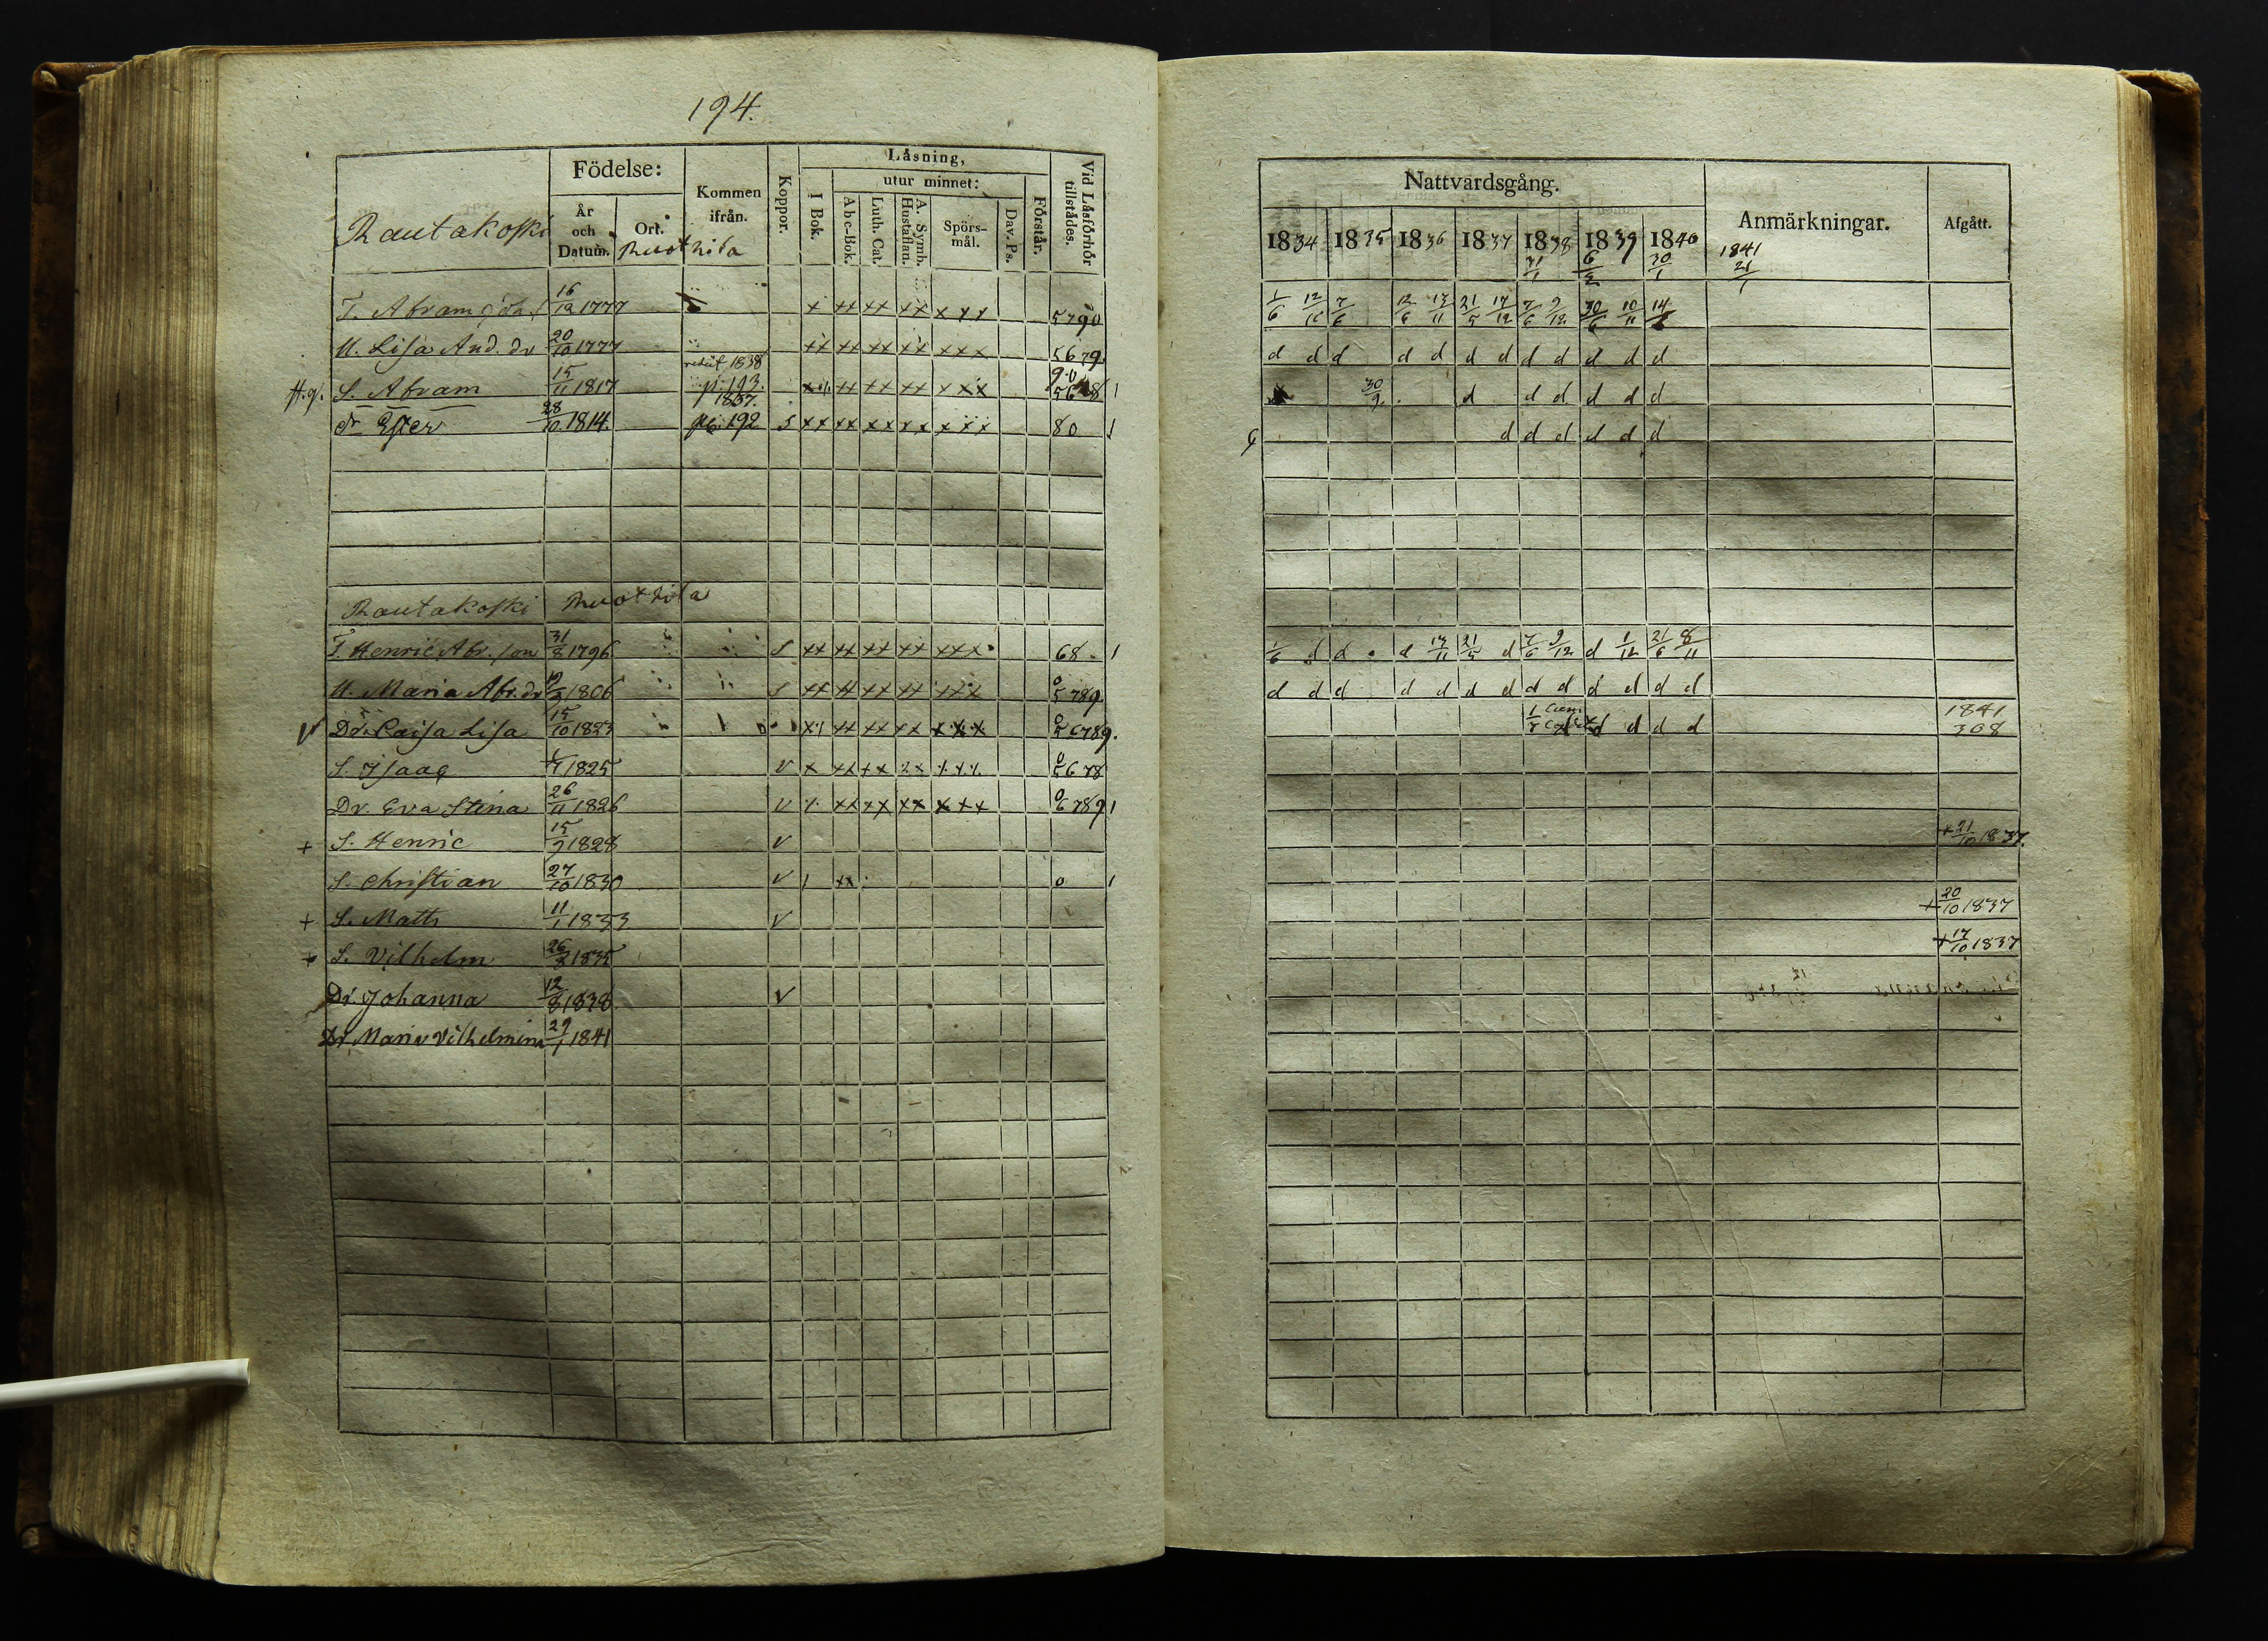 194.
Rautakoski
Födelse:
År
och
Datum.
Ort.
Ruothila
Kommen
ifrån.
Koppor.
Läsning,
I Bok.
utur minnet:
Abc-Bok.
Luth. Cat.
A. Symb.
Hustaflan.
Spörs-
mål.
Dav. Ps.
Förstår.
Vid Läsförhör
tillstådes.
T. Abram Joh. s 16/12 1777 x xx xx xx x x x 5790
U. Lisa And. dr 20/10 1777 xx xx xx xx xxx 5679.
S. Abram 15/11 1817 redut 1838 p. 193. xx xx xx x xx
dr Ester 28/10. 1814. 1837. p. 192 S xx xx xx xx x xx 80
Rautakoski Ruothila
T. Henric Abr. son 31/8 1796 S xx xx xx xx xxx 68.
U. Maria Abr. dr 1806 S xx xx xx xx xxx 0 5789
V Dr. Caisa Lisa 15/10 1823 xx xx xx x x x 0 56789.
S. Isaac 1825 V x xx xx xx 0 5678
Dr. Eva Stina 26/11 1826 V xx xx xx x xx 0 6789
+ S. Henric 15/7 1828 V
S. Christian 27/10 1830 V xx 0
+ S. Matts 11/1 1833 V
+ S. Vilhelm 26/3 1835
Dr. Johanna 12/8 1838 V
Dr Maria Vilhelmina 29/1 1841
Nattvardsgång.
Anmärkningar.
Afgått.
1834 1835 1836 1837 1838 1839 1840 1841
31/1 6/2 30/1 21/1
1/6 12/10 7/6 12/6 13/11 21/5 17/12 7/6 9/12 30/6 10/11 14/6
d d d d d d d d d d d d
30/9. d d d d d d
d d d d d d
1/6 d d d 13/11 21/5 d 7/6 9/12 d 1/12 21/6 8/11
d d d d d d d d d d d d d
d d d d 1841
308
+ 21/10 1837.
+ 20/10 1837
+ 17/10 1837